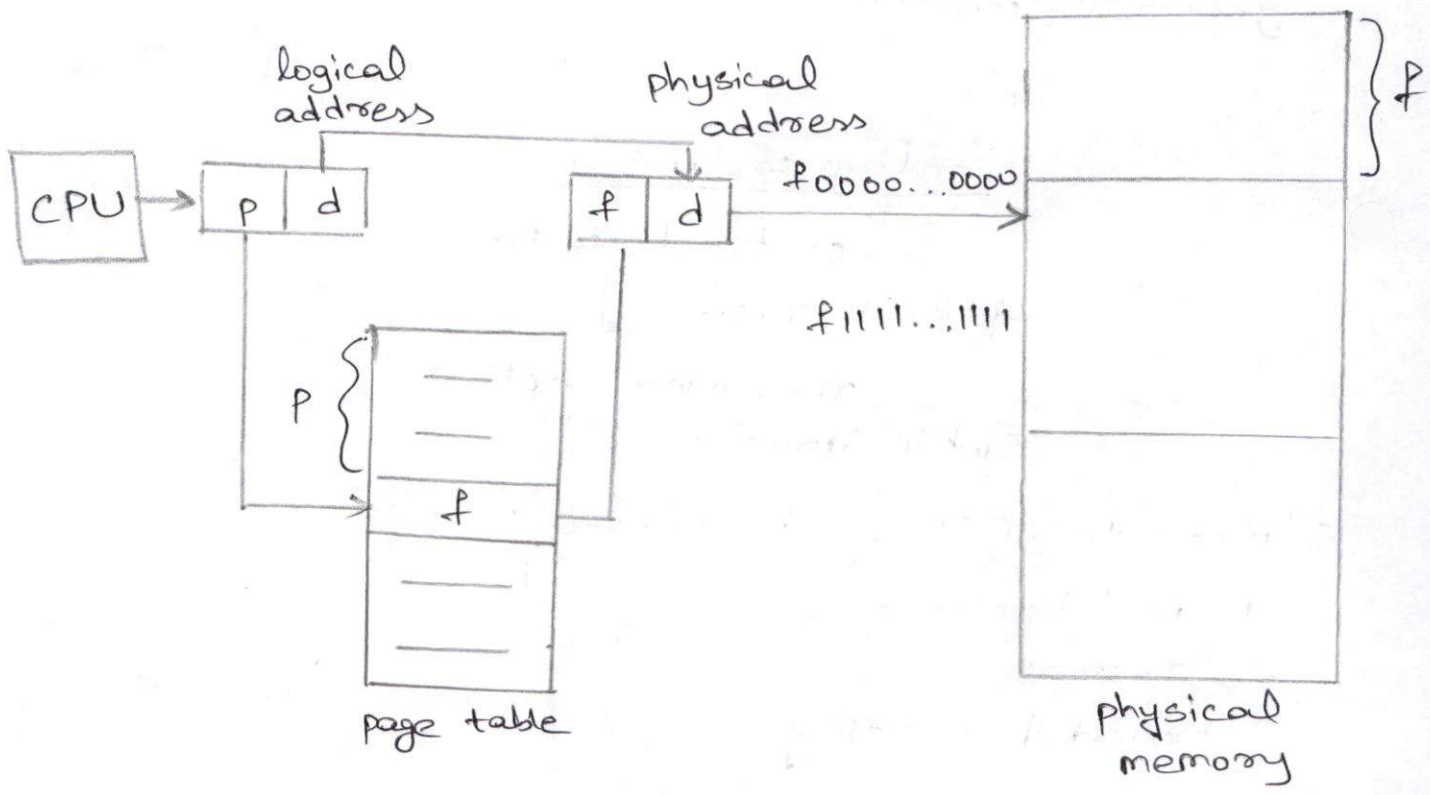 logical
address
physical
address
CPU
p d
f d
f0000...0000
f
f1111...1111
p
f
page table
physical
memory